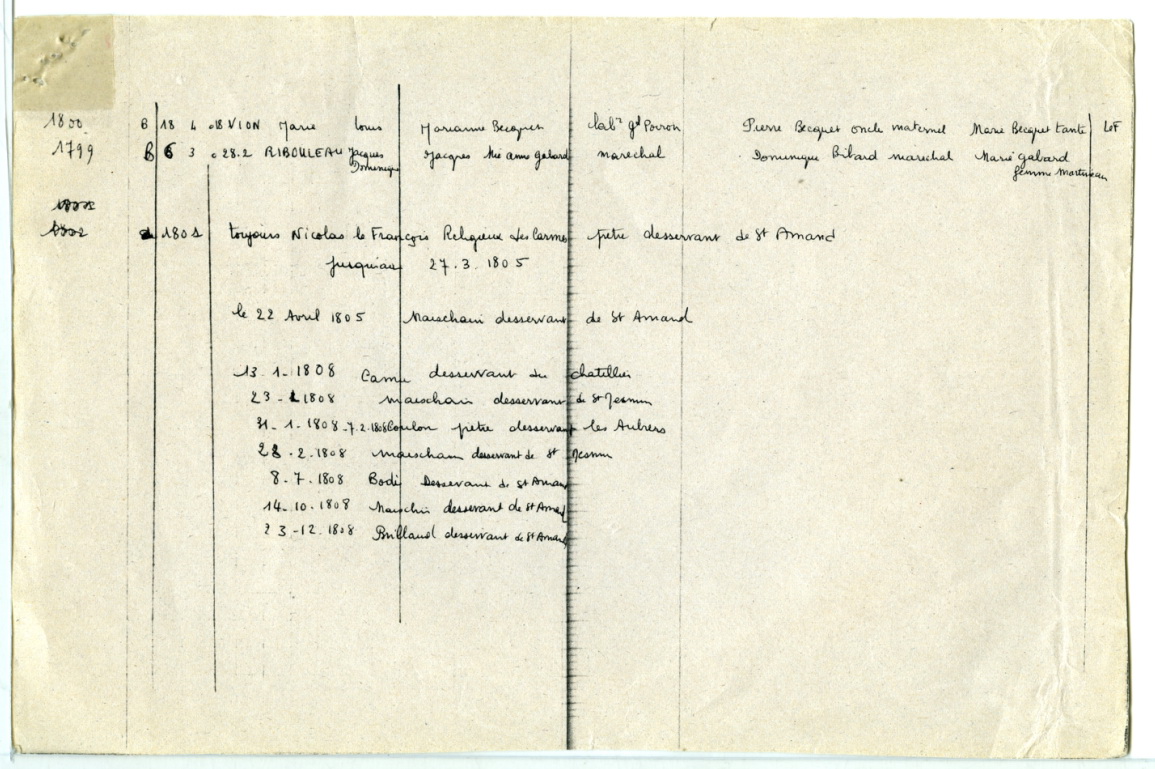 1800 B 18 4 °18 VION Marie Louis Marianne Becquet lab^r g^d Poiron Pierre Becquet oncle maternel Marie Becquet tante LeF
1799 B 6 3 °28.2 RIBOULEAU Jacques Jacques Mie anne gabard marechal Dominique Bibard marechal Marie gabard
Dominique femme Martineau
1801 toujours Nicolas le François Religieux des Carmes prêtre desservant de St Amand
jusquiau 27.3.1805
le 22 Avril 1805 Maischain desservant de St Amand
13.1.1808 desservant du chatillier
23-1.1808 maischain desservant de St Jesmin
31-1.1808-7.2.1808 Coulon prêtre desservant les Aubiers
28.2.1808 maischain desservant de St Jesmin
8.7.1808 Bodi Desservant de St Amand
14.10.1808 Maischin desservant de St Amand
23-12.1808 Brillaud desservant de St Amand